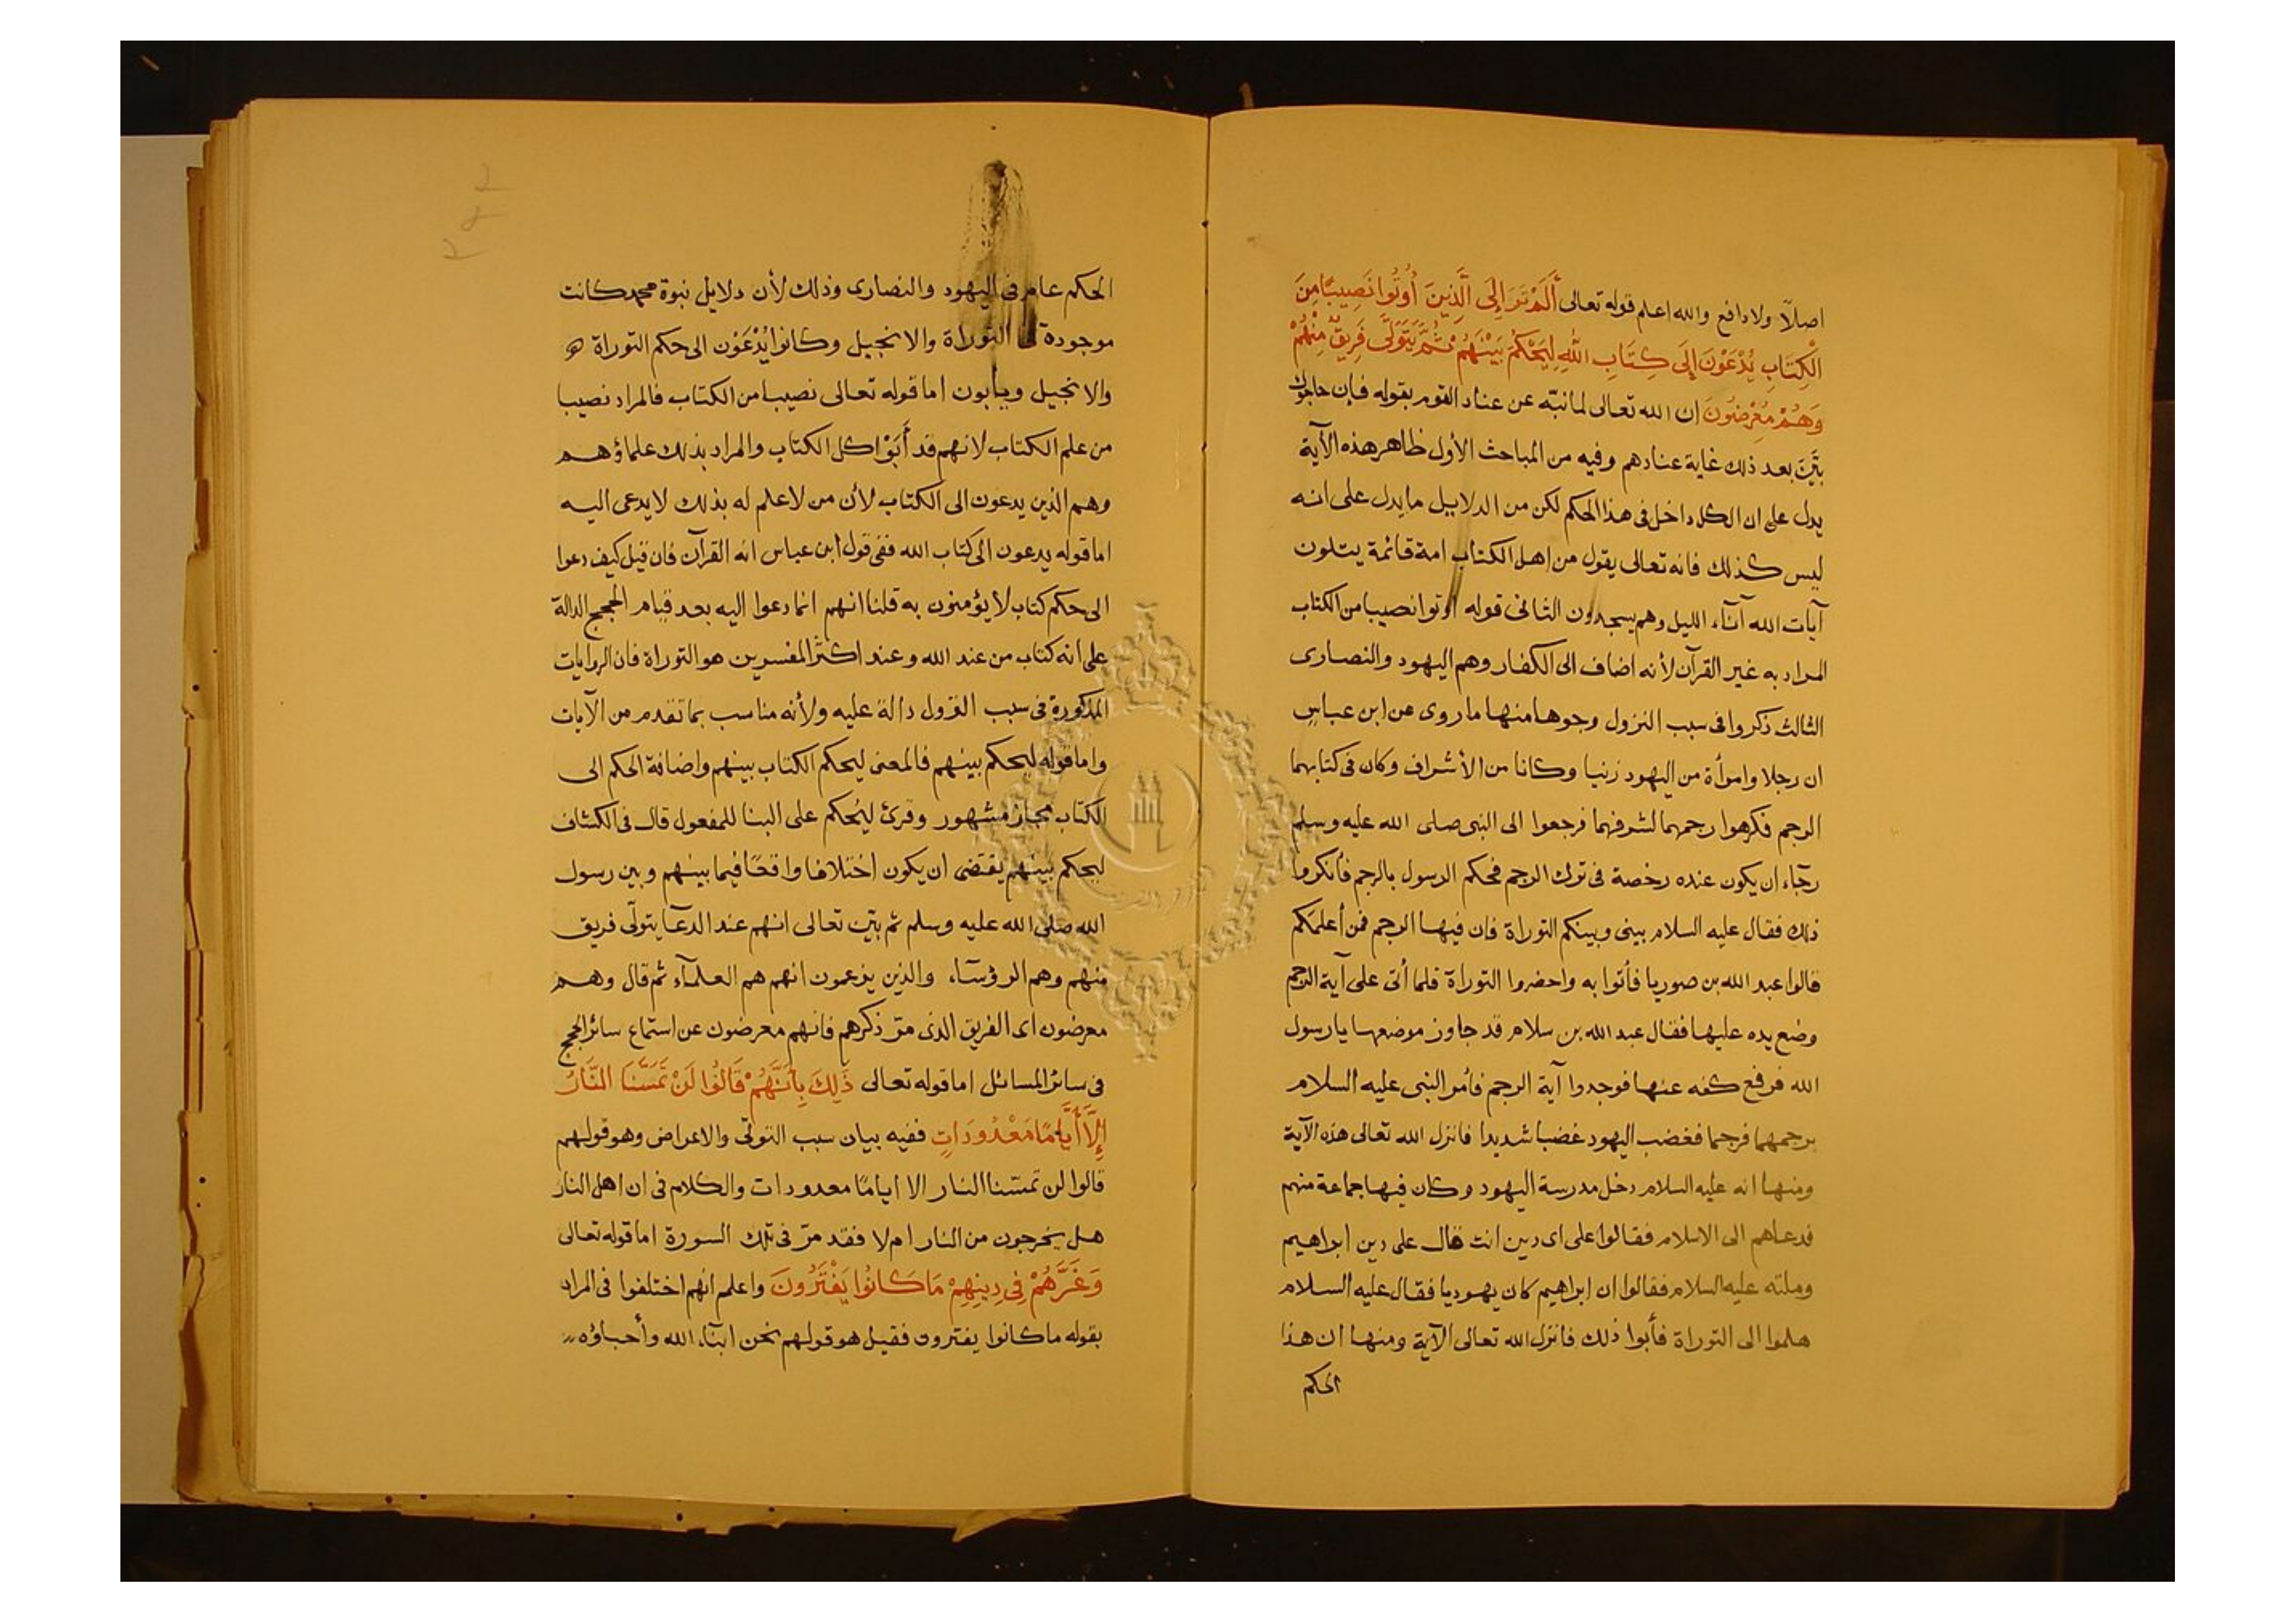 اصلًا ولا دافع والله اعلم قوله تعالى أَلَمْ تَرَ إِلَى الَّذِينَ أُوتُوا نَصِيبًا مِنَ
الْكِتَابِ يُدْعَوْنَ إِلَى كِتَابِ اللَّهِ لِيَحْكُمَ بَيْنَهُمْ ثُمَّ يَتَوَلَّى فَرِيقٌ مِنْهُمْ
وَهُمْ مُعْرِضُونَ ان الله تعالى لما نبّه عن عناد القوم بقوله فإن حاجوك
بيّن بعد ذلك غاية عنادهم وفيه من المباحث الأول ظاهر هذه الآية
يدل على ان الكل داخل فى هذا الحكم لكن من الدلايل ما يدل على انه
ليس كذلك فانه تعالى يقول من اهل الكتاب امة قائمة يتلون
آيات الله آنآء الليل وهم يسجدون الثانى قوله اوتوا نصيبا من الكتاب
المراد به غير القرآن لأنه اضاف الى الكفار وهم اليهود والنصارى
الثالث ذكروا فى سبب النزول وجوها منها ما روى عن ابن عباس
ان رجلا وامرأة من اليهود زنيا وكانا من الأشراف وكان فى كتابهما
الرجم فكرهوا رجمهما لشرفهما فرجعوا الى النبى صلى الله عليه وسلم
رجآء ان يكون عنده رخصة فى ترك الرجم فحكم الرسول بالرجم فأنكروا
ذلك فقال عليه السلام بينى وبينكم التوراة فان فيها الرجم فمن أعلمكم
قالوا عبد الله بن صوريا فأتوا به واحضروا التوراة فلما أتى على آية الرجم
وضع يده عليها فقال عبد الله بن سلام قد جاوز موضعها يا رسول
الله فرفع كفه عنها فوجدوا آية الرجم فأمر النبى عليه السلام
برجمهما فرجما فغضب اليهود غضبا شديدا فانزل الله تعالى هذه الآية
ومنها انه عليه السلام دخل مدرسة اليهود وكان فيها جماعة منهم
فدعاهم الى الاسلام فقالوا على اى دين انت قال على دين ابراهيم
وملته عليه السلام فقالوا ان ابراهيم كان يهوديا فقال عليه السلام
هلموا الى التوراة فأبوا ذلك فانزل الله تعالى الآية ومنها ان هذا
الحكم
الحكم عام فى اليهود والنصارى وذلك لأن دلايل نبوة محمد كانت
موجودة التوراة والانجيل وكانوا يُدْعَوْن الى حكم التوراة
والانجيل ويأبون اما قوله تعالى نصيبا من الكتاب فالمراد نصيبا
من علم الكتاب لانهم قد أَبَوْا كل الكتاب والمراد بذلك علماؤهم
وهم الذين يدعون الى الكتاب لأن من لا علم له بذلك لا يدعى اليه
اما قوله يدعون الى كتاب الله ففى قول ابن عباس انه القرآن فان قيل كيف دعوا
الى حكم كتاب لا يؤمنون به قلنا انهم انما دعوا اليه بعد قيام الحجج الدالة
على انه كتاب من عند الله وعند اكثر المفسرين هو التوراة فان الروايات
المذكورة فى سبب النزول دالة عليه ولأنه مناسب بما تقدم من الآيات
واما قوله ليحكم بينهم فالمعنى ليحكم الكتاب بينهم واضافة الحكم الى
الكتاب مجاز مشهور وقرئ ليُحكم على البنا للمفعول قال فى الكشاف
ليحكم بينهم يقتضى ان يكون اختلافا واقعًا فيما بينهم وبين رسول
الله صلى الله عليه وسلم ثم بيّن تعالى انهم عند الدعآ يتولّى فريق
منهم وهم الرؤسآء والذين يزعمون انهم هم العلمآء ثم قال وهم
معرضون اى الفريق الذى مرّ ذكرهم فانهم معرضون عن استماع سائر الحجج
فى سائر المسائل اما قوله تعالى ذَلِكَ بِأَنَّهُمْ قَالُوا لَنْ تَمَسَّنَا النَّارُ
إِلَّا أَيَّامًا مَعْدُودَاتٍ ففيه بيان سبب التولّى والاعراض وهو قولهم
قالوا لن تمسّنا النار الا ايامًا معدودات والكلام فى ان اهل النار
هل يخرجون من النار ام لا فقد مرّ فى تلك السورة اما قوله تعالى
وَغَرَّهُمْ فِي دِينِهِمْ مَا كَانُوا يَفْتَرُونَ واعلم انهم اختلفوا فى المراد
بقوله ما كانوا يفترون فقيل هو قولهم نحن ابنآء الله وأحباؤه